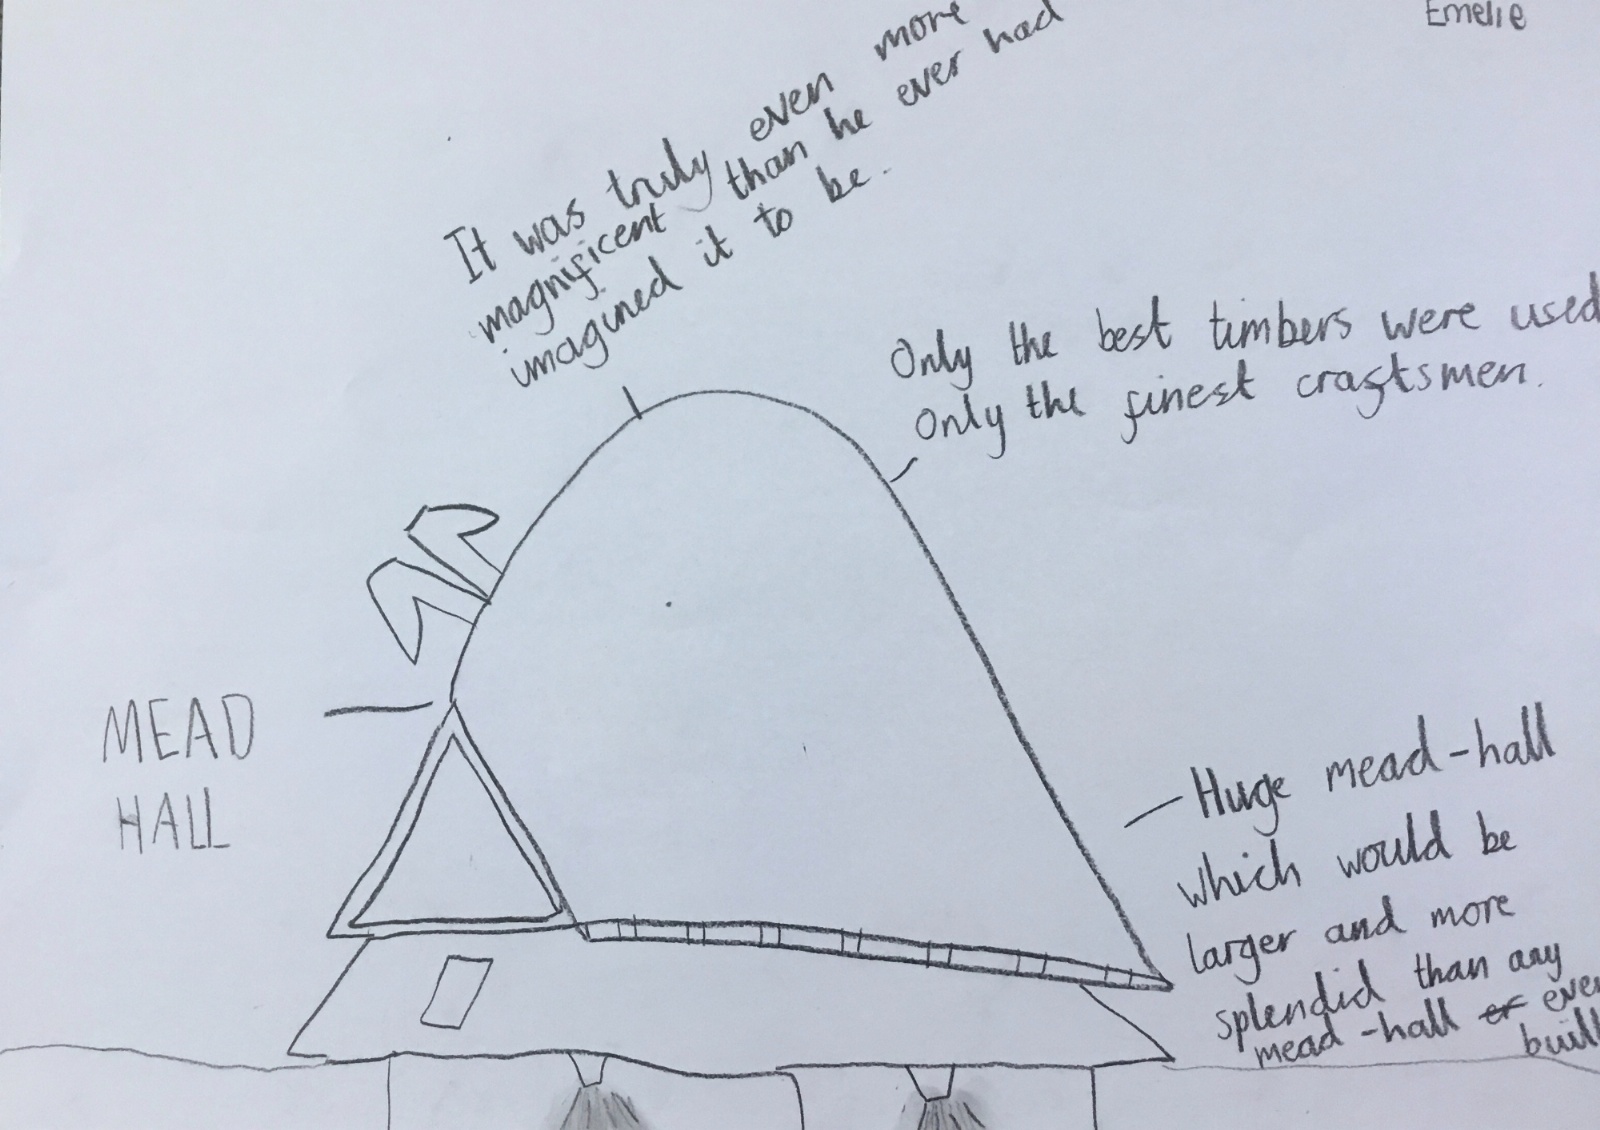 Emelie
It was truly even more
magnificent than he ever had
imagined it to be.
Only the best timbers were used
Only the finest craftsmen.
MEAD
HALL
Huge mead-hall
which would be
larger and more
splendid than any
mead-hall or ever
built